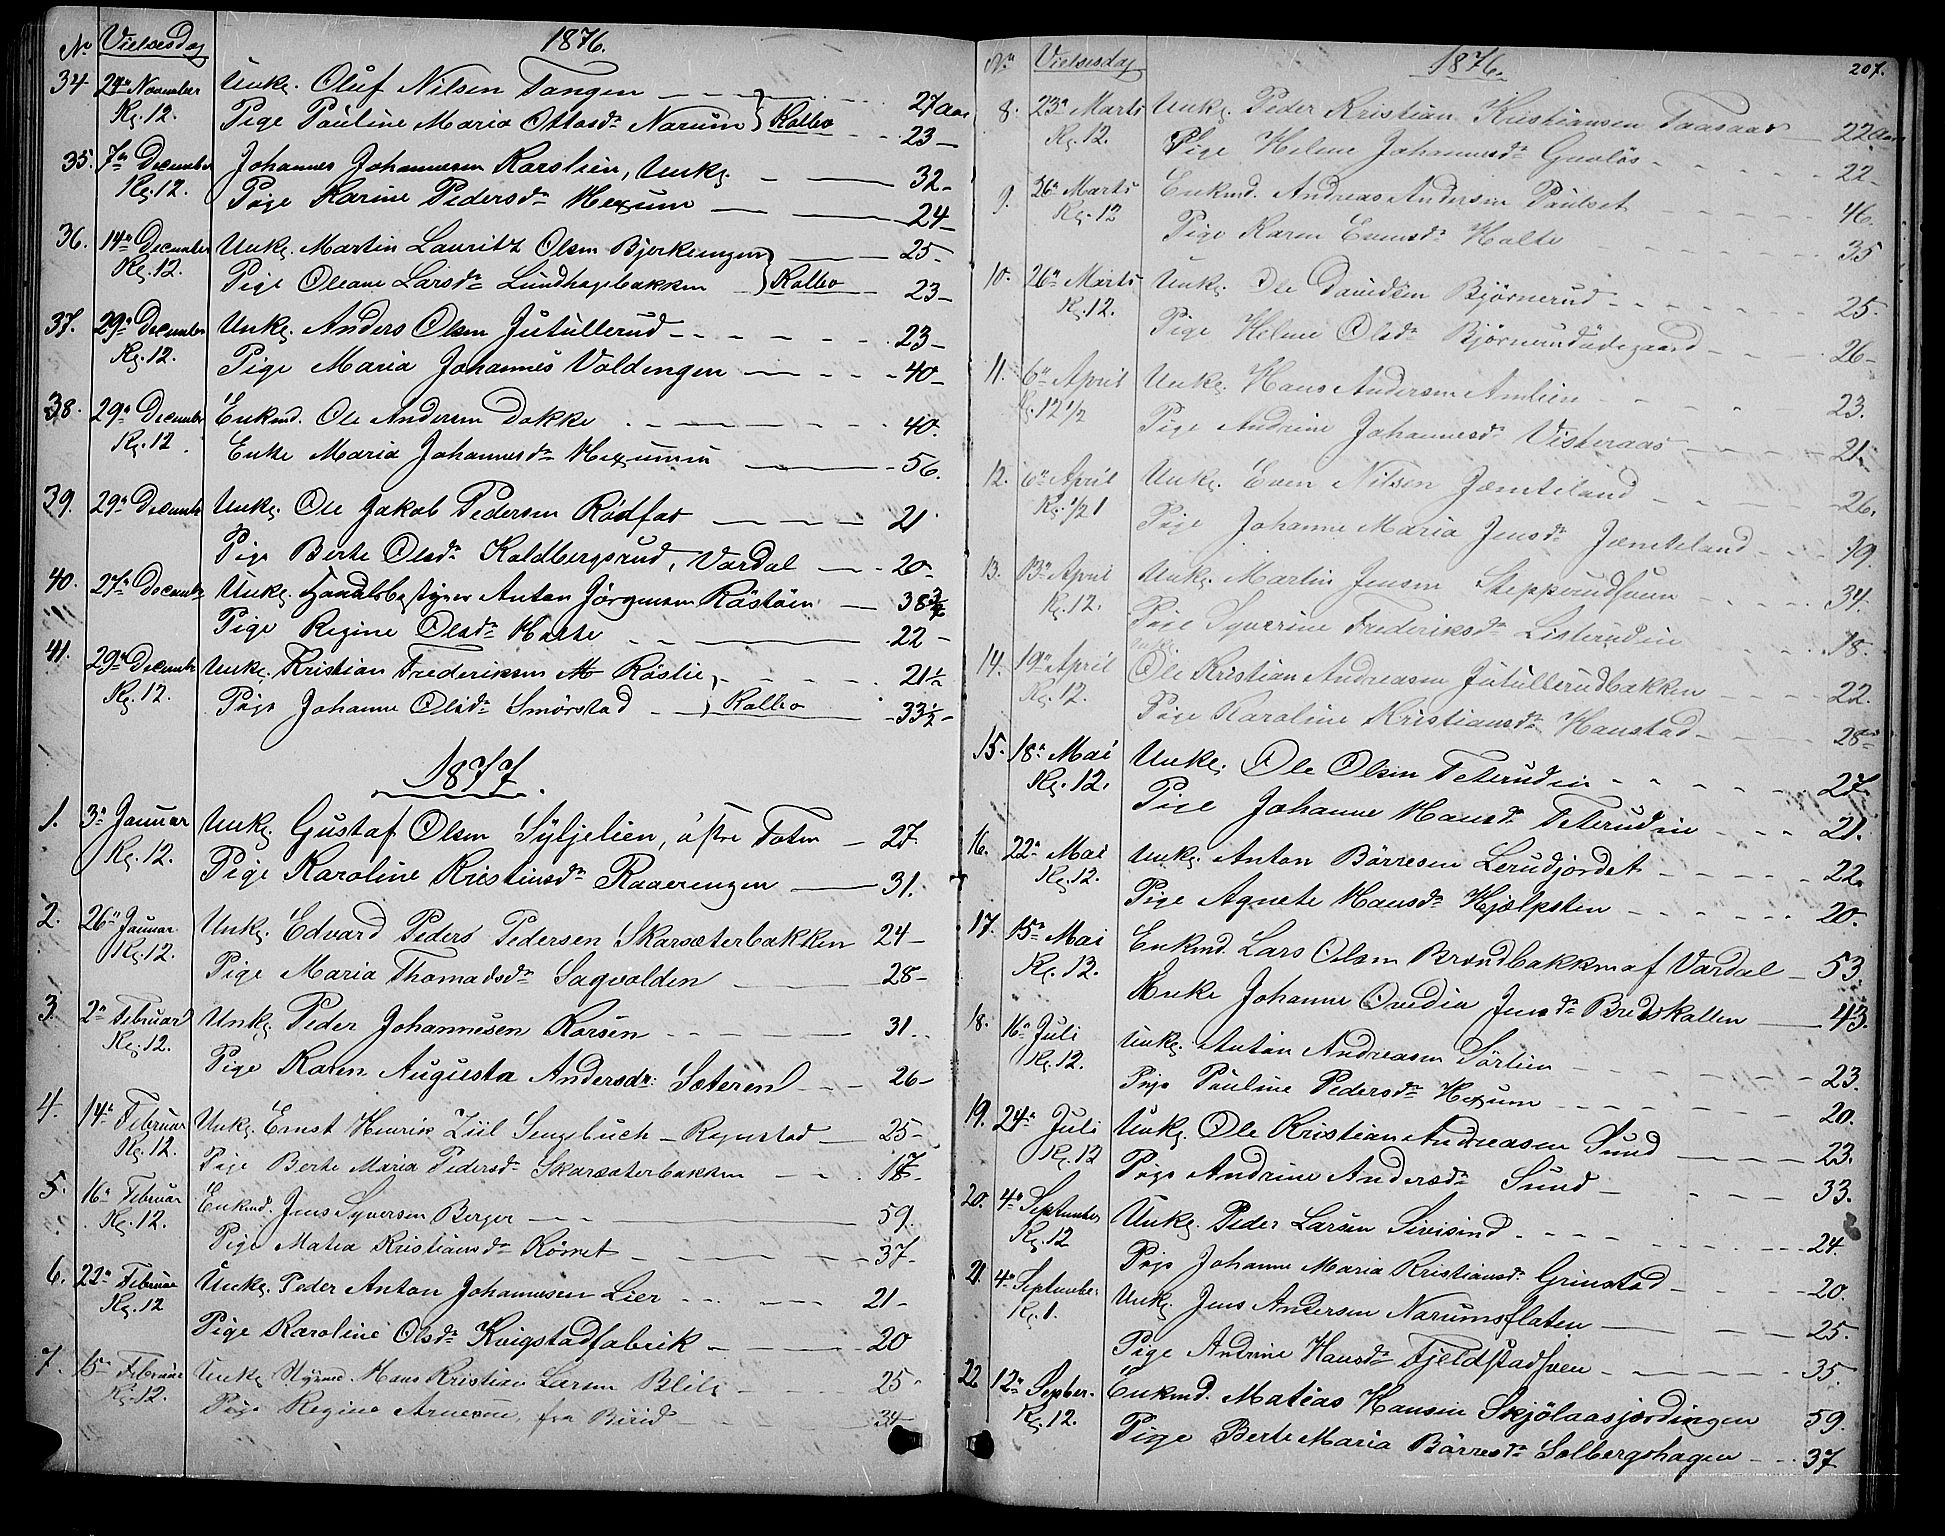 No Vielsesdag 1876.
34 24de November Unkf. Oluf Nilsen Tangen 27 Aar
Kl. 12. Pige Pauline Maria Ottosdr Narum Kolbo 23
35. 7de December Johannes Johannesen Karslien, Unkf. 32
Kl. 12. Pige Karine Pedersdr Hexum 24
36. 14de December Unkf. Martin Lauritz Olsen Bjerkeengen 25
Kl. 12. Pige Oleane Larsdr Lundhagebakken Kolbo 23
37. 29de December Unkf. Anders Olsen Jutullerud 23
Kl. 12. Pige Maria Johannes Voldengen 40
38. 29de December Enkmd. Ole Andersen Dokke 40.
Kl. 12 Enke Maria Johannesdr Hexumm 56.
39. 29de Decemb Unkf. Ole Jakob Pedersen Rödfos 21
Pige Berte Olsdr Koldbergsrud, Vardal 20
40. 27de Decemb Unkf. Handelsbestyrer Anton Jörgensen Röstöen 38 3/4
Pige Regine Olsdr Halte 22
41. 29de Decemb Unkf. Kristian Frederiksen Röslie 21 1/2
Kl. 12. Pige Johanne Olsdr Smörstad Kolbo 33 1/2
1877.
1. 3de Januar Unkf. Gustaf Olsen Syljelien, östre Toten 27.
Kl. 12. Pige Karoline Kristiansdr Raaerengen 31.
2. 26de Januar Unkf. Edvard Peders Pedersen Skarsæterbakken 24
Kl. 12. Pige Maria Thomasdr Sagvolden 28
3. 2de Februar Unkf. Peder Johannesen Korsen 31.
Kl. 12. Pige Karen Augusta Andersdr: Sæteren 26
4. 14de Februar Unkf. Ernst Henrik Ziil Sengebuch - Rognstad 25
Kl. 12. Pige Berte Maria Pedersdr Skarsæterbakken 17
5. 16de Februar Enkmd. Jens Syversen Berger 59.
Kl. 12. Pige Matea Kristiansdr 37
6. 22de Februar Unkf. Peder Anton Johannesen Lier 21
Kl. 12 Pige Karoline Olsdr Kvigstadfabrik 20
7. 15de Februar Unkf. Hans Kristian Larsen Blili 25
Kl. 12. Pige Regine Arnesen, fra Birid 34
No Vielsesdag 1876. 207.
8. 23de Marts Unkf. Peder Kristian Kristiansen Taasaas 22 Aar
Kl. 12. Pige Helene Johannesdr Gunlös 22
9. 26de Marts Enkmd. Andreas Andersen Paulset 46.
Kl. 12 Pige Karen Evensdr Halte 35
10. 26de Marts Unkf. Ole Davidsen Bjørnerud 25.
Kl. 12. Pige Helene Olsdr Bjørnerudødegaard 26
11. 6te April Unkf. Hans Andersen Amlien 23.
Kl. 12 1/2 Pige Andrine Johannesdr Visteraas 21
12. 6te April Unkf. Even Nilsen Jemteland 26.
Kl. 1/2 1 Pige Johanne Maria Jensdr Jemteland 19.
13. 13de April Unkf. Martin Jensen Stepperudsveen 34.
Kl. 12. Pige Syverine Frederiksdr Listerudeie 18.
14. 19de April Unkf. Ole Kristian Andreasen Jutullerudbakken 22.
Kl. 12. Pige Karoline Kristiansdr Hanstad 28
15. 18de Mai Unkf. Ole Olsen Teterudeie 27
Kl. 12. Pige Johanne Hansdr Teterudeie 21.
16. 22de Mai Unkf. Anton Börresen Lerudjordet 22.
Kl. 12. Pige Agnete Hansdr Hjælpsten 20.
17. 15de Mai Enkmd. Lars Olsen Brændbakken af Vardal 53.
Kl. 12. Enke Johanne Ovedia Jensdr Bredskallen 43.
18. 16de Juli Unkf. Anton Andreasen Sörlien 23.
Kl. 12. Pige Pauline Pedersdr Hexum 20.
19. 24de Juli Unkf. Ole Kristian Andreasen Sund 23.
Kl. 12 Pige Andrine Andersdr Sund 33.
20. 4de September Unkf. Peder Larsen Sivisind 24.
Kl. 12 Pige Johanne Maria Kristiansdr Grinstad 20.
21. 4de September Unkf. Jens Andersen Narumsflaten 25.
Kl. 1. Pige Andrine Hansdr Fjeldstadsveen 35.
22 12te Septber. Enkmd. Matias Hansen Skjölaasjordingen 59.
Kl. 12. Pige Berte Maria Börresdr Solbergshagen 37